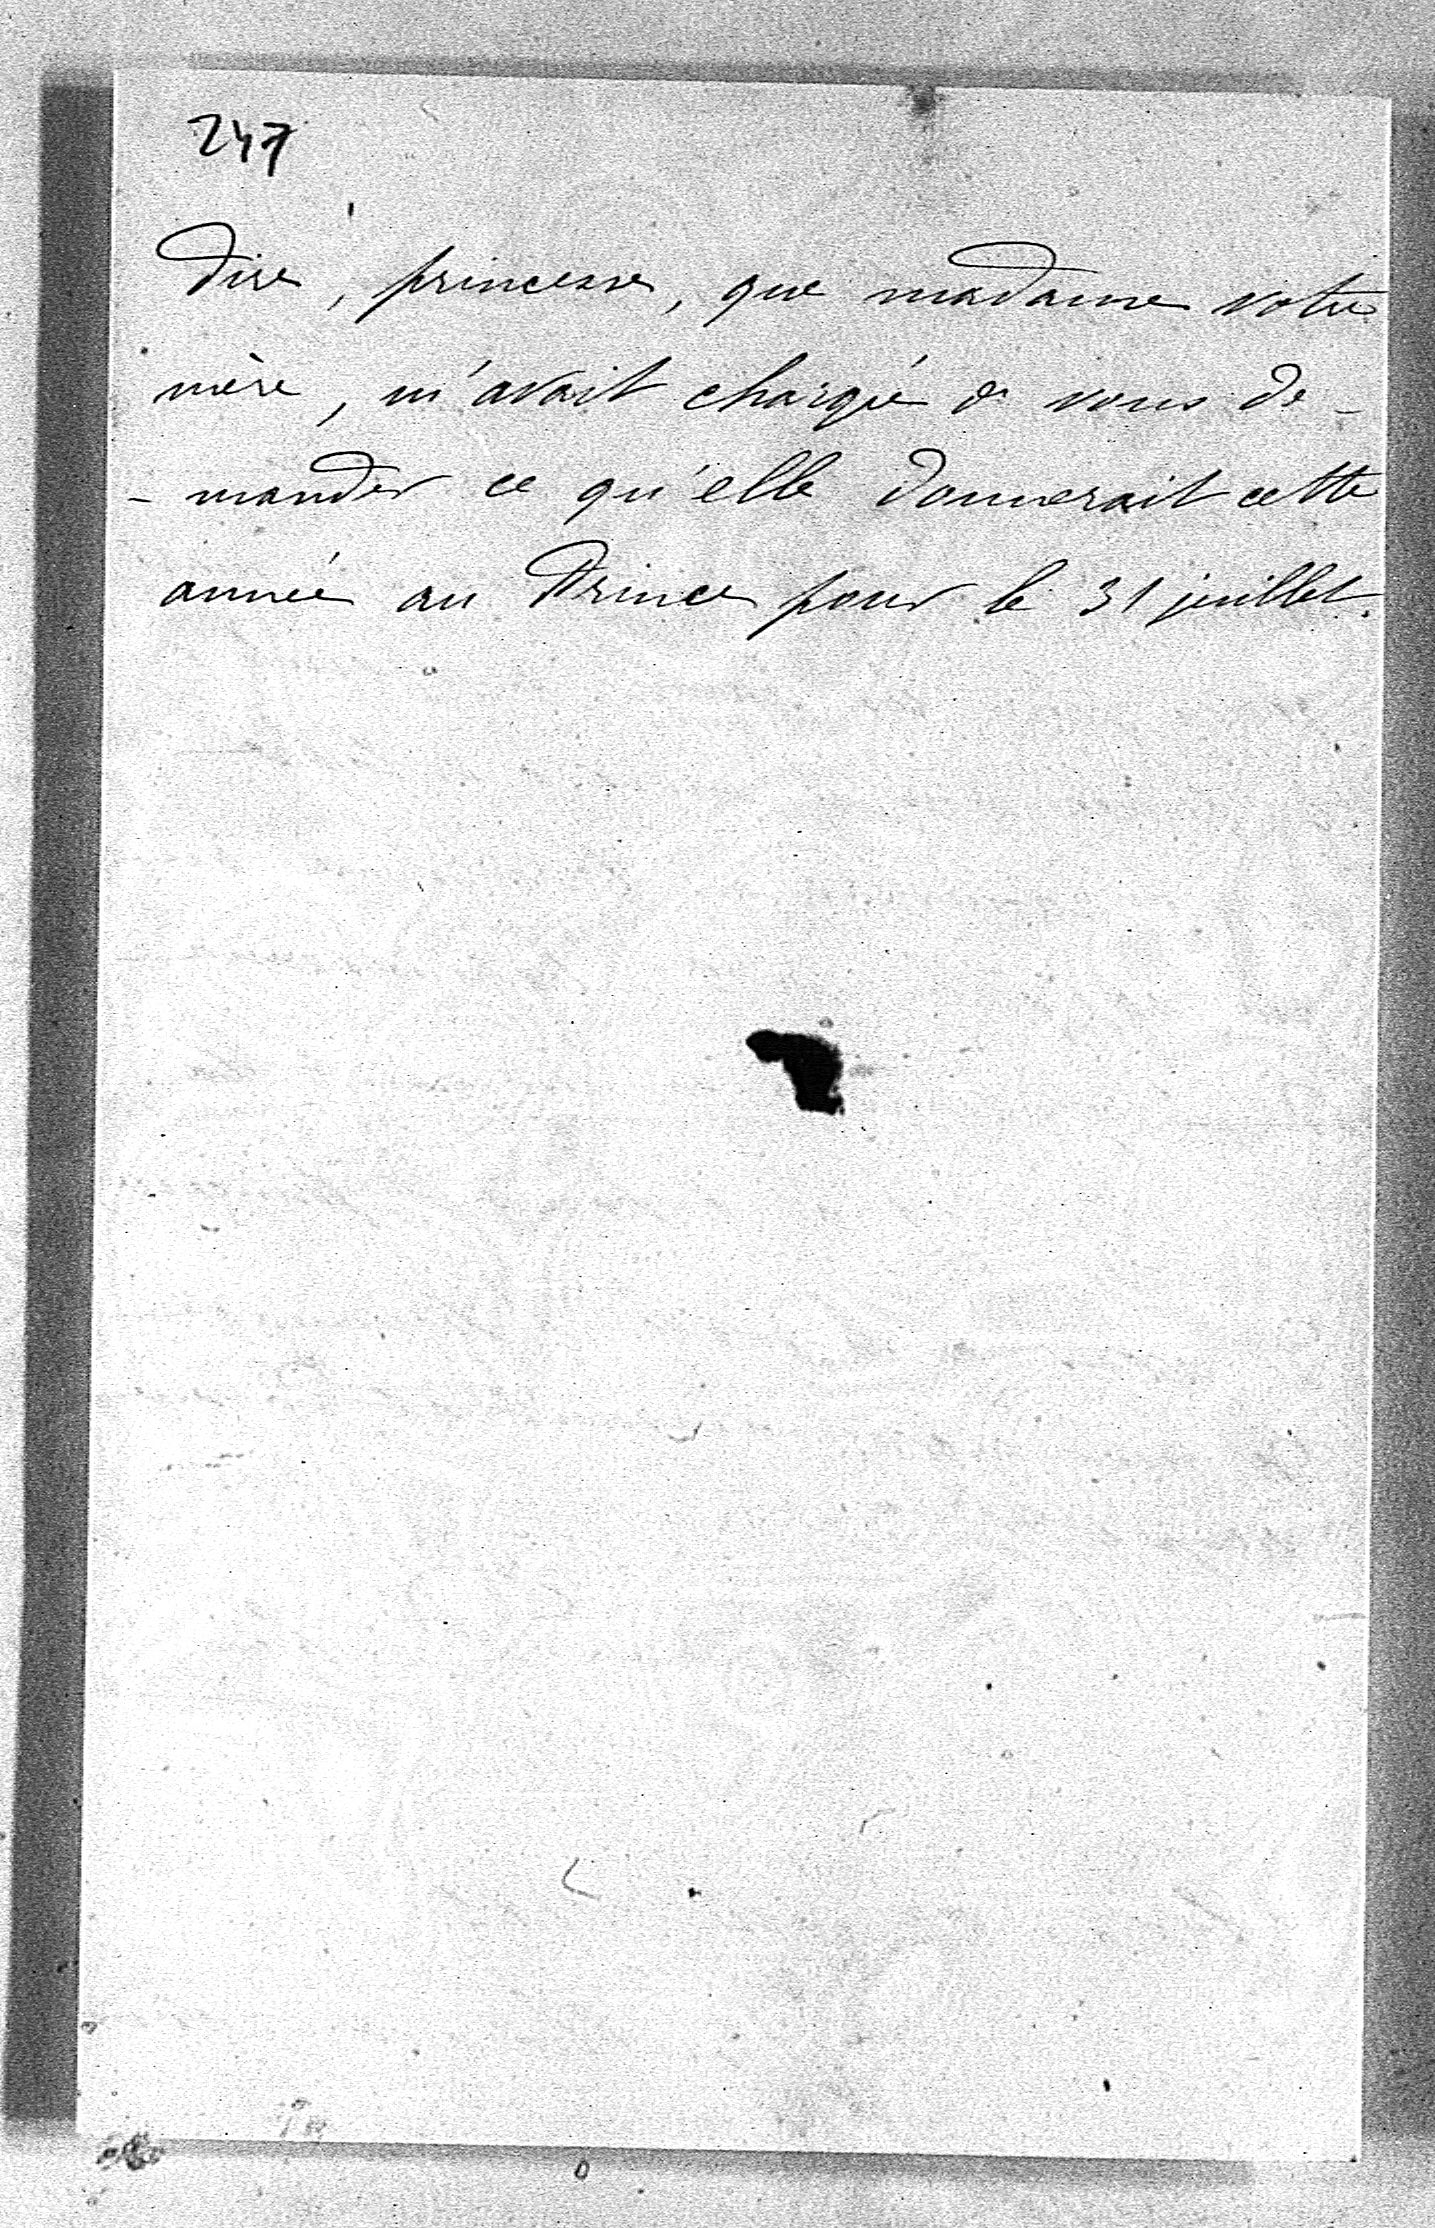 247
dire, princesse, que madame votre
mère, m'avait chargé de vous de-
-mander ce qu'elle donnerait cette
année au Prince pour le 31 juillet.